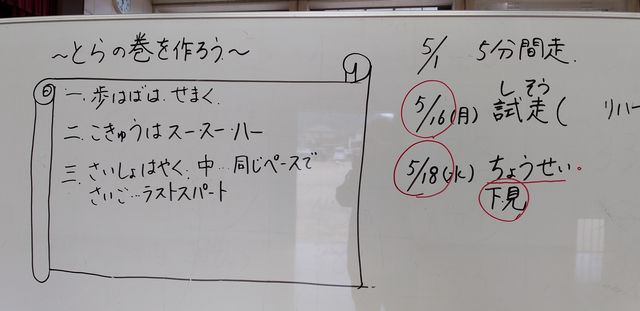 ～とらの巻を作ろう～
一.歩はばは、せまく
二.こきゅうはスースーハー
三.さいしょはやく、中…同じペースで
さいご…ラストスパート
5/1 5分間走
しそう
5/16(月) 試走( リハー
5/18(水) ちょうせい。
下見